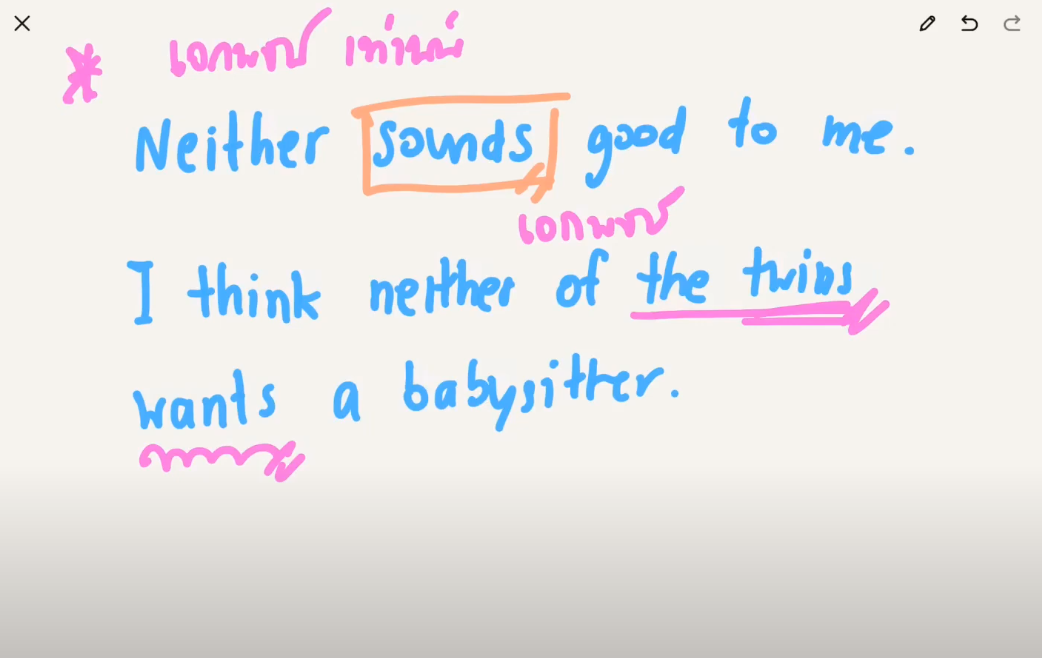 * เอกพจน์ เท่านั้น
Neither sounds good to me.
เอกพจน์
I think neither of the twins
wants a babysitter.